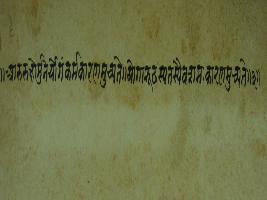 ॥आरुरुक्षोर्मुनेर्योगंकर्मकारणमुच्यते॥योगारूढस्यतस्यैवशमःकारणमुच्यते॥३॥